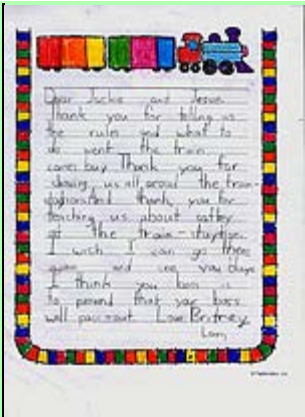 Dear Jackie and Jesue
Thank you for telling us
the rules and what to
do went the train
comes buy Thank you for
showing us all aroud the train-
thank you for
teaching us about saftey
at the train-staytion.
I wish I can go there
again and see you
I think you bos is
to pround that your bors
will pass out. Love Britney